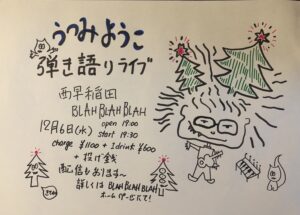 うつみようこ
弾き語りライブ
西早稲田
BLAH BLAH BLAH
12月6日(水) open 19:00
start 19:30
charge ¥1100 + 1drink ¥600
+ 投げ銭
配信もあります〜
詳しくは BLAH BLAH BLAH
ホームページにて!